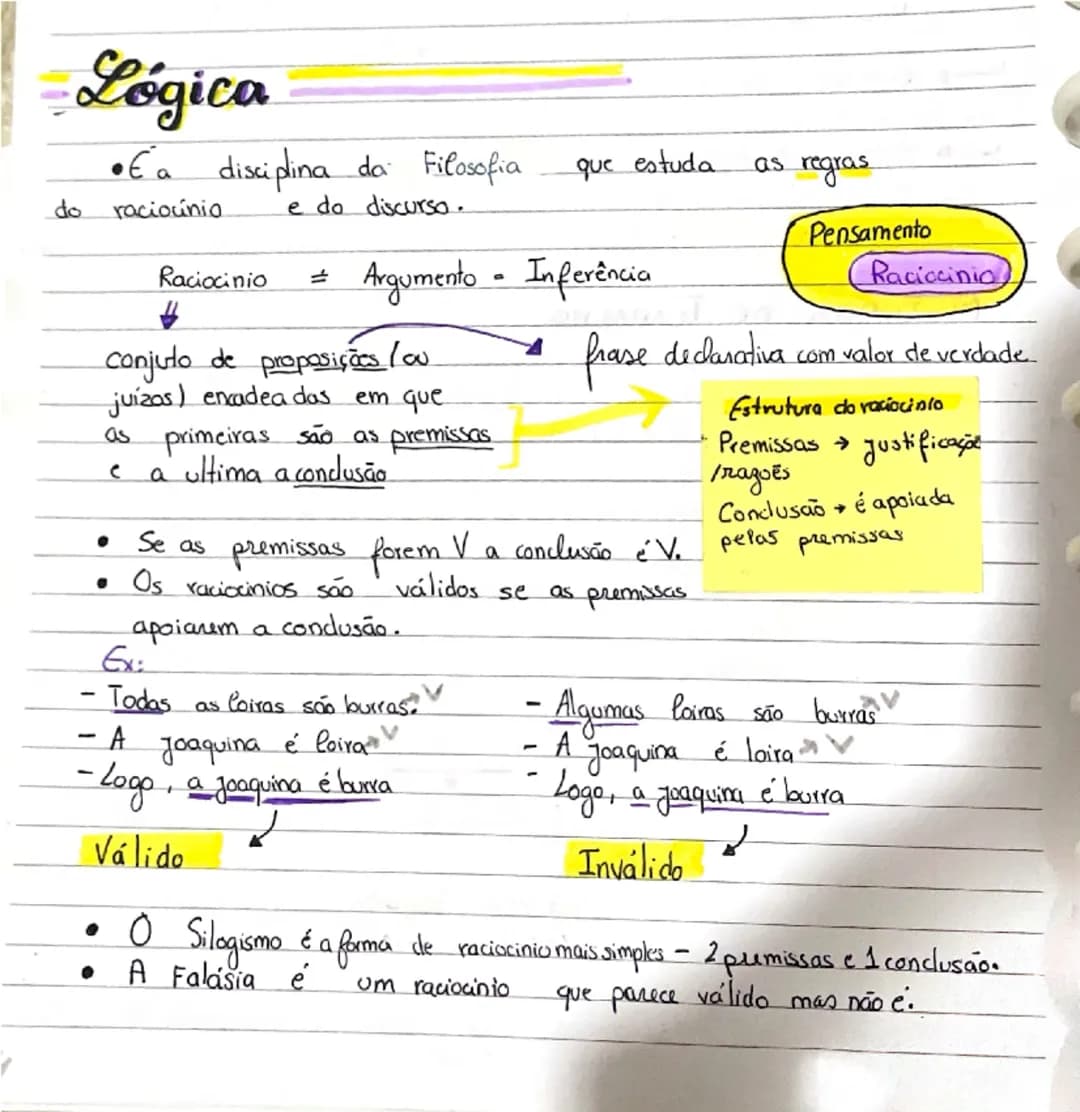 Lógica
• É a disciplina da Filosofia que estuda as regras
do raciocínio e do discurso.
Pensamento
Raciocínio
Raciocinio ≠ Argumento - Inferência
conjuto de proposições (ou
juízos) encadeadas em que
as primeiras são as premissas
e a ultima a conclusão
frase declarativa com valor de verdade
Estrutura do raciocínio
Premissas → justificação
/razões
Conclusão → é apoiada
pelas premissas
• Se as premissas forem V a conclusão é V.
• Os raciocinios são válidos se as premissas
apoiarem a conclusão.
Ex:
- Todas as loiras são burras. → V
- A Joaquina é loira → V
- Logo, a Joaquina é burra
Válido
- Algumas loiras são burras → V
- A Joaquina é loira → V
- Logo, a Joaquina é burra
Inválido
• O Silogismo é a forma de raciocinio mais simples - 2 premissas e 1 conclusão.
• A Falásia é um raciocínio que parece válido mas não é.